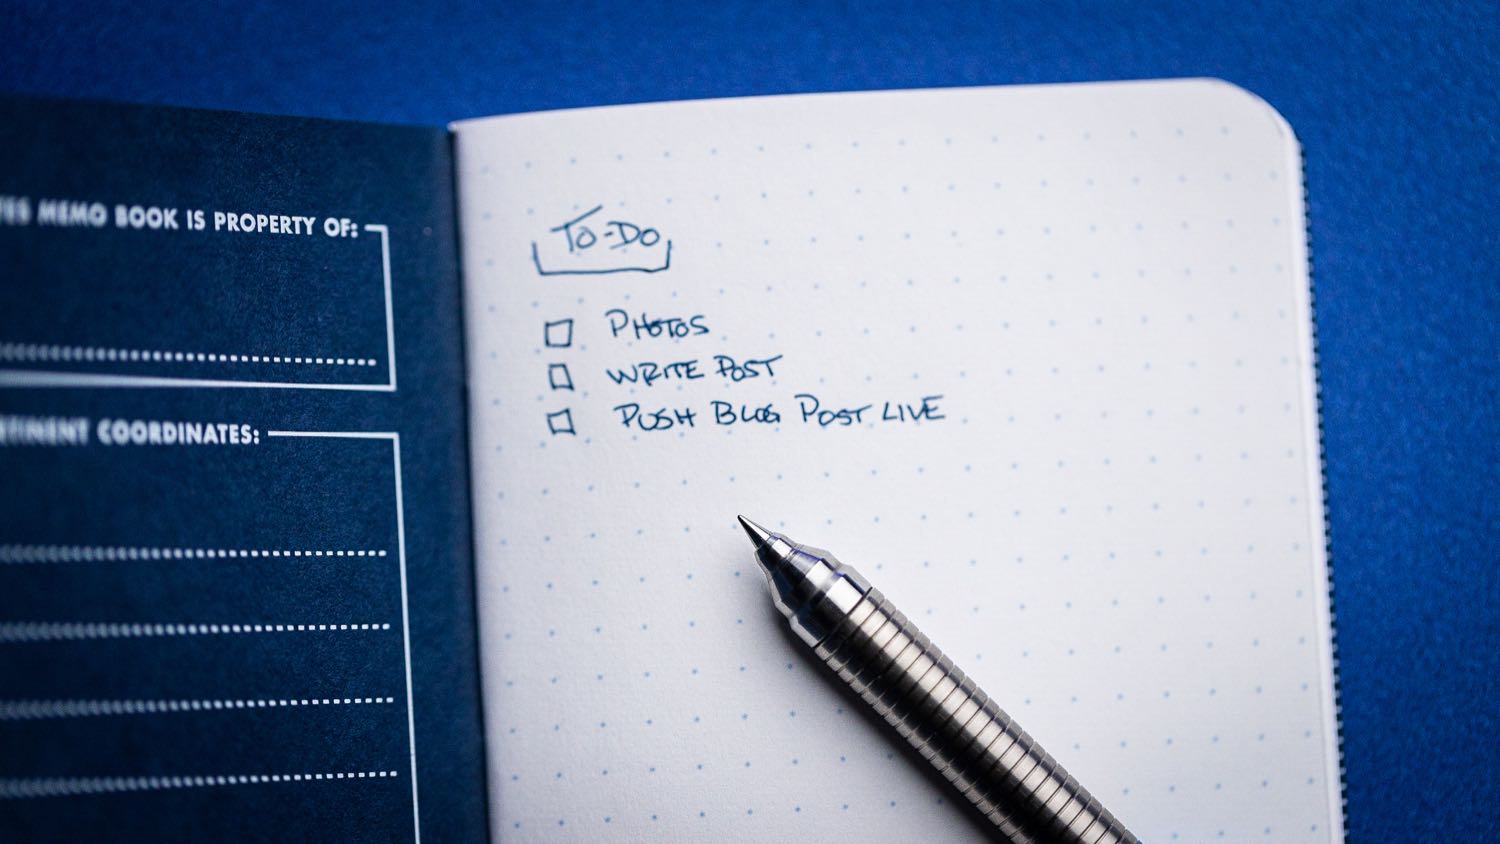 MEMO BOOK IS PROPERTY OF:
COORDINATES:
TO-DO
PHOTOS
WRITE POST
PUSH BLOG POST LIVE